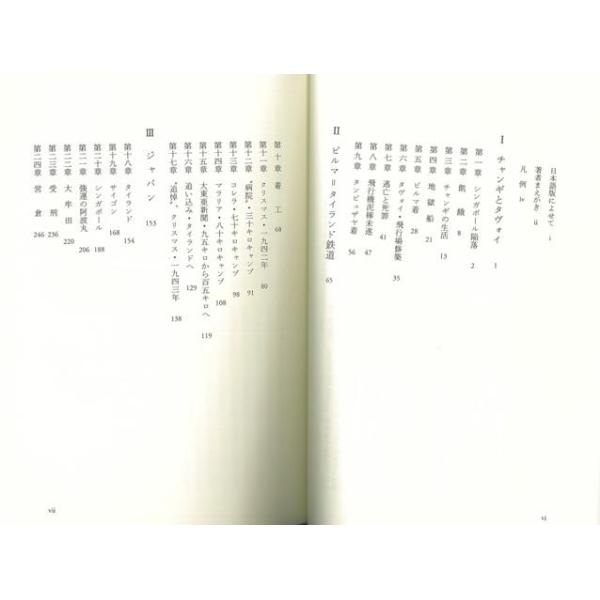 日本語版によせて i
著者まえがき ii
凡例 iv
I チャンギとタヴォイ 1
第一章 シンガポール陥落 2
第二章 飢餓 8
第三章 チャンギの生活 13
第四章 地獄船 21
第五章 ビルマ着 28
第六章 タヴォイ・飛行場修築 35
第七章 逃亡と死罪 41
第八章 飛行機泥棒未遂 47
第九章 タンビュザヤ着 56
II ビルマ＝タイランド鉄道 65
vi
第十章 着工 68
第十一章 クリスマス・一九四二年 80
第十二章 “病院”・三十キロキャンプ 91
第十三章 コレラ・七十キロキャンプ 98
第十四章 マラリア・八十キロキャンプ 108
第十五章 大東亜新聞・九五キロから百五キロへ 119
第十六章 追い込み・タイランドへ 129
第十七章 “追悼”、クリスマス・一九四三年 138
III ジャパン 153
第十八章 タイランド 154
第十九章 サイゴン 168
第二十章 シンガポール 188
第二一章 強運の阿波丸 206
第二二章 大牟田 220
第二三章 受刑 236
第二四章 営倉 246
vii